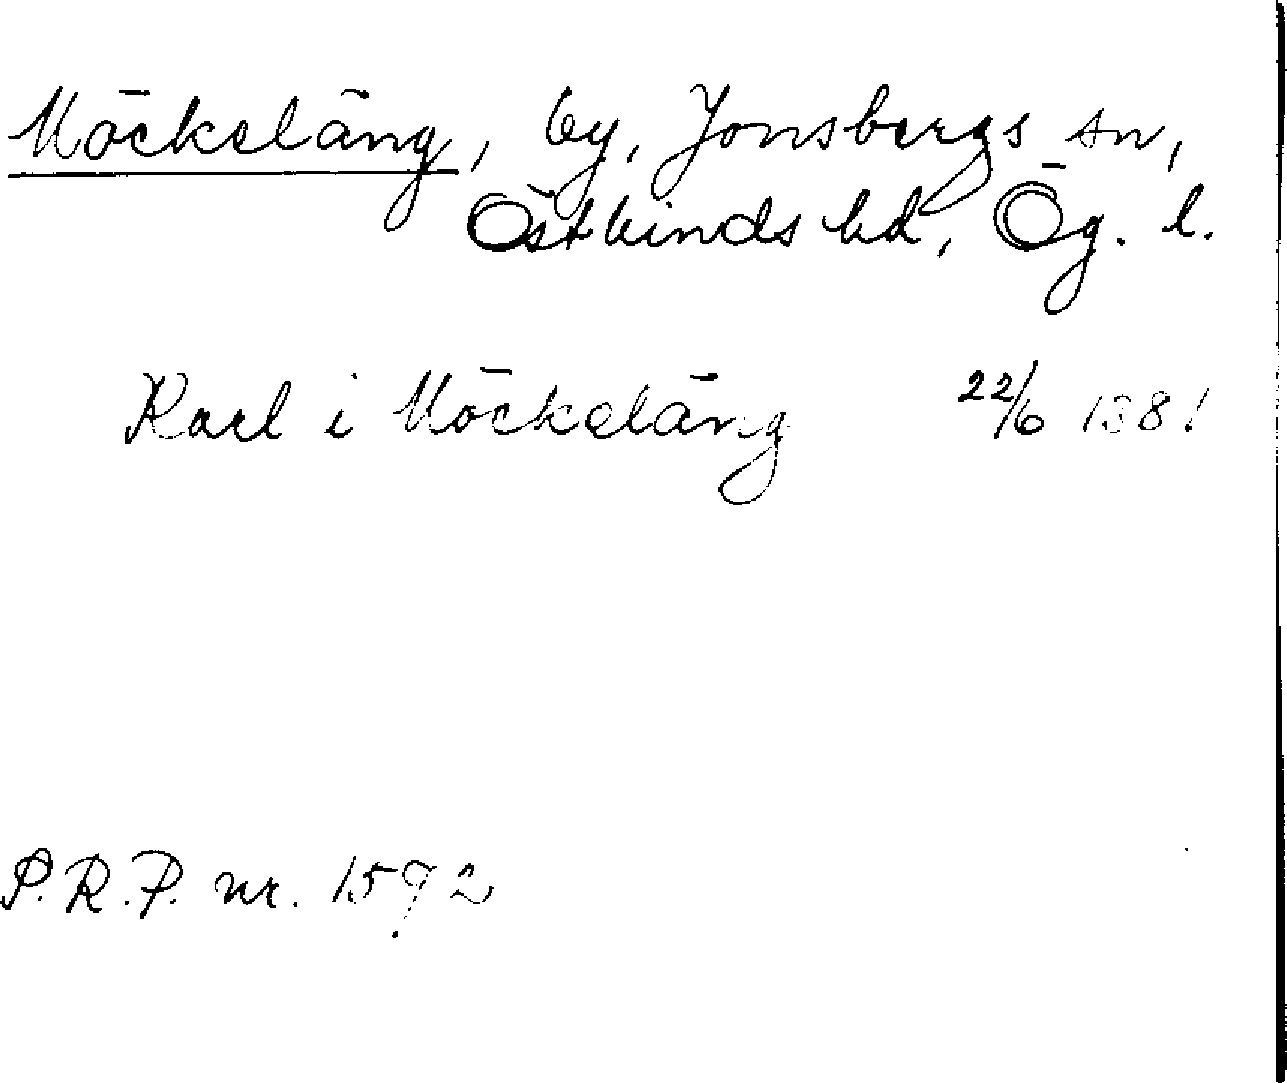 Möckeläng, by, Jonsbergs sn,
Östkinds hd, Ög. l.
Karl i Möckeläng 22/6 1381
S.R.P. nr. 1592